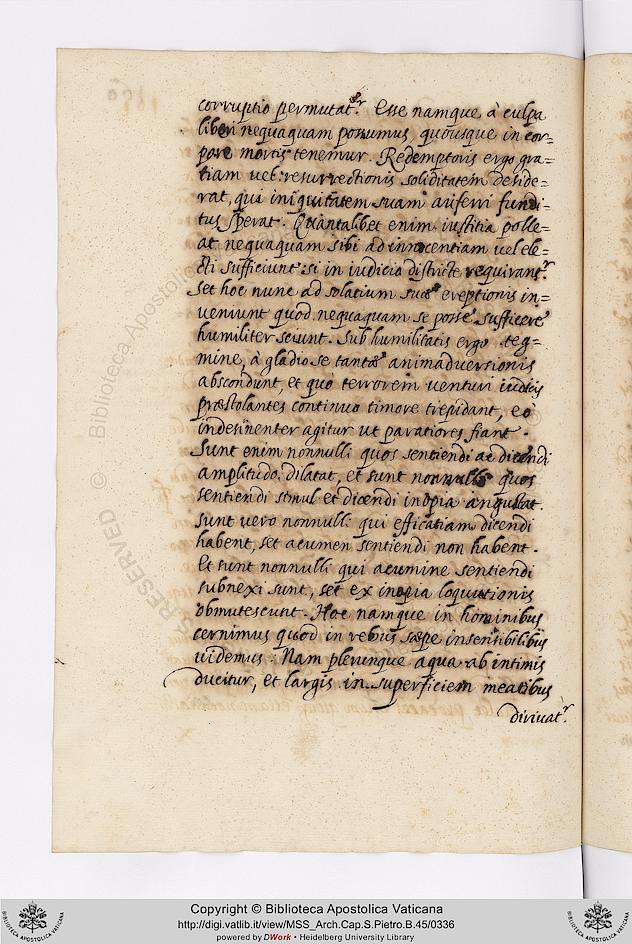 corruptio permutat.ʳ Esse namque à culpa
liberi nequaquam possumus, quousque in cor=
pore mortis tenemur. Redemptoris ergo gra=
tiam vel resurrectionis soliditatem deside=
rat, qui iniquitatem suam auferri fundi=
tus sperat. Quantalibet enim iustitia polle=
at nequaquam sibi ad innocentiam vel ele=
cti sufficiunt si in iudicio districte requirant.ʳ
Set hoc nunc ad solatium suæ ereptionis in=
veniunt quod nequaquam se posse sufficere
humiliter sciunt. Sub humilitatis ergo teg=
mine, à gladio se tantæ animadversionis
abscondunt, et quo terrorem venturi iudicis
præstolantes continuo timore trepidant, eò
indesinenter agitur ut paratiores fiant.
Sunt enim nonnulli quos sentiendi ac dicendi
amplitudo dilatat, et sunt nonnulli quos
sentiendi simul et dicendi inopia angustat.
sunt vero nonnulli qui efficatiam dicendi
habent, set acumen sentiendi non habent.
Et sunt nonnulli qui acumine sentiendi
subnexi sunt, set ex inopia loquutionis
obmutescunt. Hoc namque in hominibus
cernimus quod in rebus sæpe insensibilibus
videmus. Nam plerunque aqua ab intimis
ducitur, et largis in superficiem meatibus
dirivat.ʳ
© Biblioteca Apostolica
RESERVED ©
Copyright © Biblioteca Apostolica Vaticana
http://digi.vatlib.it/view/MSS_Arch.Cap.S.Pietro.B.45/0336
powered by DWork • Heidelberg University Library